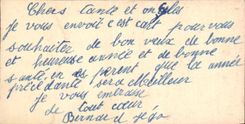 Chers tante et oncles
je vous envoie c'est carte pour vous
souhaiter de bon veux de bonne
et heureuse année et de bonne
santé, en espérent que la année
précédante sera meilleur
je vous embrasse
de tout cœur
Bernard